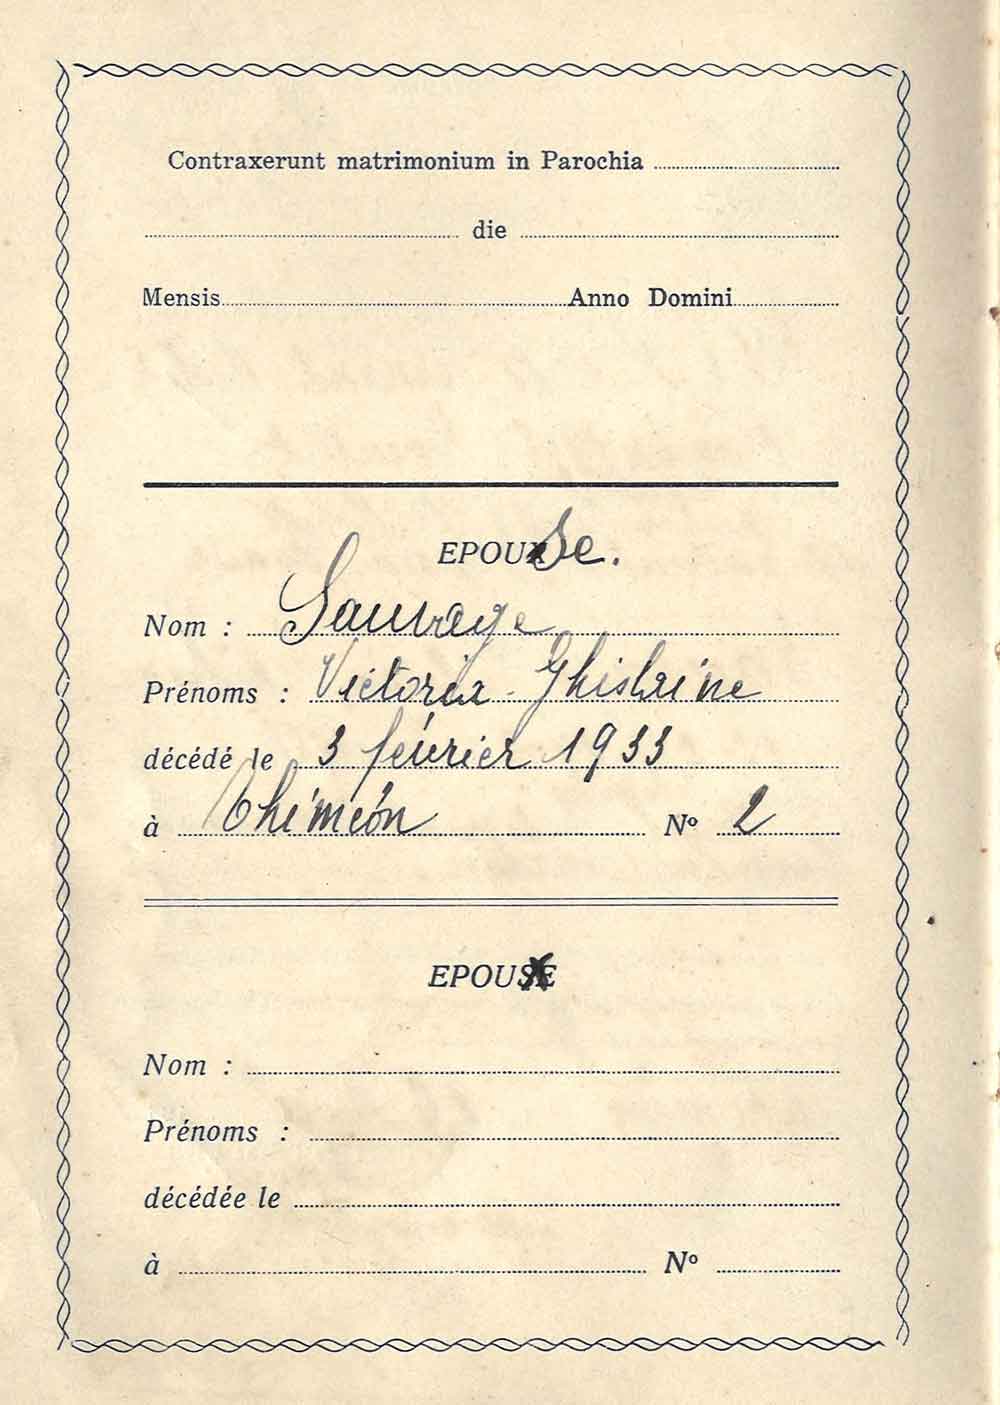 Contraxerunt matrimonium in Parochia
die
Mensis Anno Domini
EPOUSe.
Nom : Sauvage
Prénoms : Victoria Ghislaine
décédé le 3 février 1933
à Thiméon Nº 2
EPOUX
Nom :
Prénoms :
décédée le
à Nº